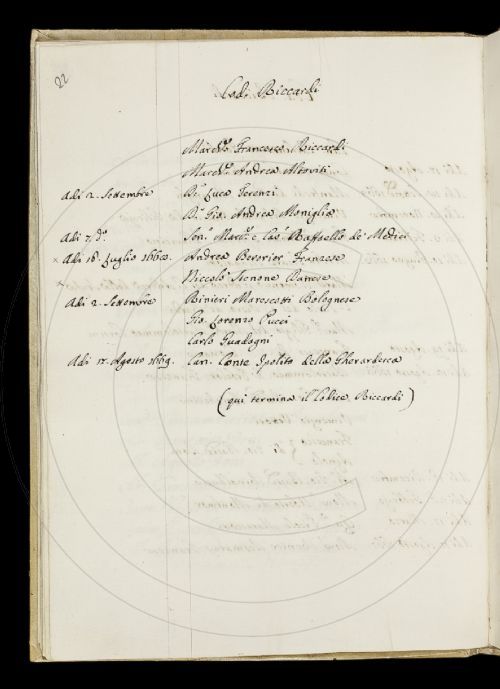 22
Cod. Riccardi
March.e Francesco Riccardi
March.e Andrea Altoviti
Adi 2. Settembre D.r Luca Terenzi
D.r Gio. Andrea Moniglia
Adi 7. d.o Sen.r March.e e Cav.r Raffaello de' Medici
× Adi 18. Luglio 1660. Andrea Francese
× Niccolò Stenone Danese
Adi 2. Settembre Binieri Marescotti Bolognese
Gio. Lorenzo Pucci
Carlo Guadagni
Adi 17. Agosto 1669. Can. Conte Ipolito della Gherardesca
(qui termina il Codice Riccardi)